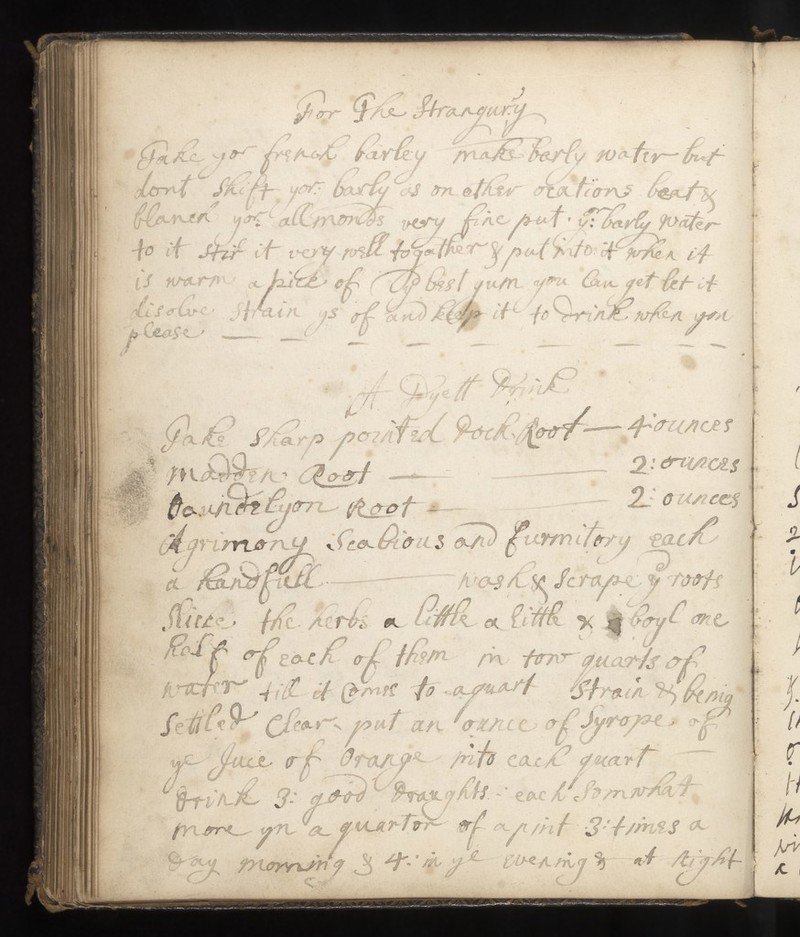 For The Strangury
Take yor french barley make barly water but
dont shift yor: barly as on other ocations beat &
blanch yor: allmonds very fine put yr: barly water
to it stir it very well togather & put into it when it
is warm a pice of best gum you Can get let it
disolve strain ys of and keep it to drink when you
please
A Dyett Drink
Take Sharp pointed Dock Root — 4: ounces
madden Root — 2: ounces
Daundelyon Root — 2: ounces
Agrimony Scabious and furmitory each
a handfull — wash & Scrape ye roots
Slice the herbs a little a little & boyl one
half of each of them in tow quarts of
water till it Comes to a quart Strain & being
Settled Clear put an ounce of Syrope of
ye Juce of Orange into each quart —
Drink 3: good Draughts: each Somwhat
more yn a quarter of a pint 3: times a
Day morning & 4: in ye evening & at Night